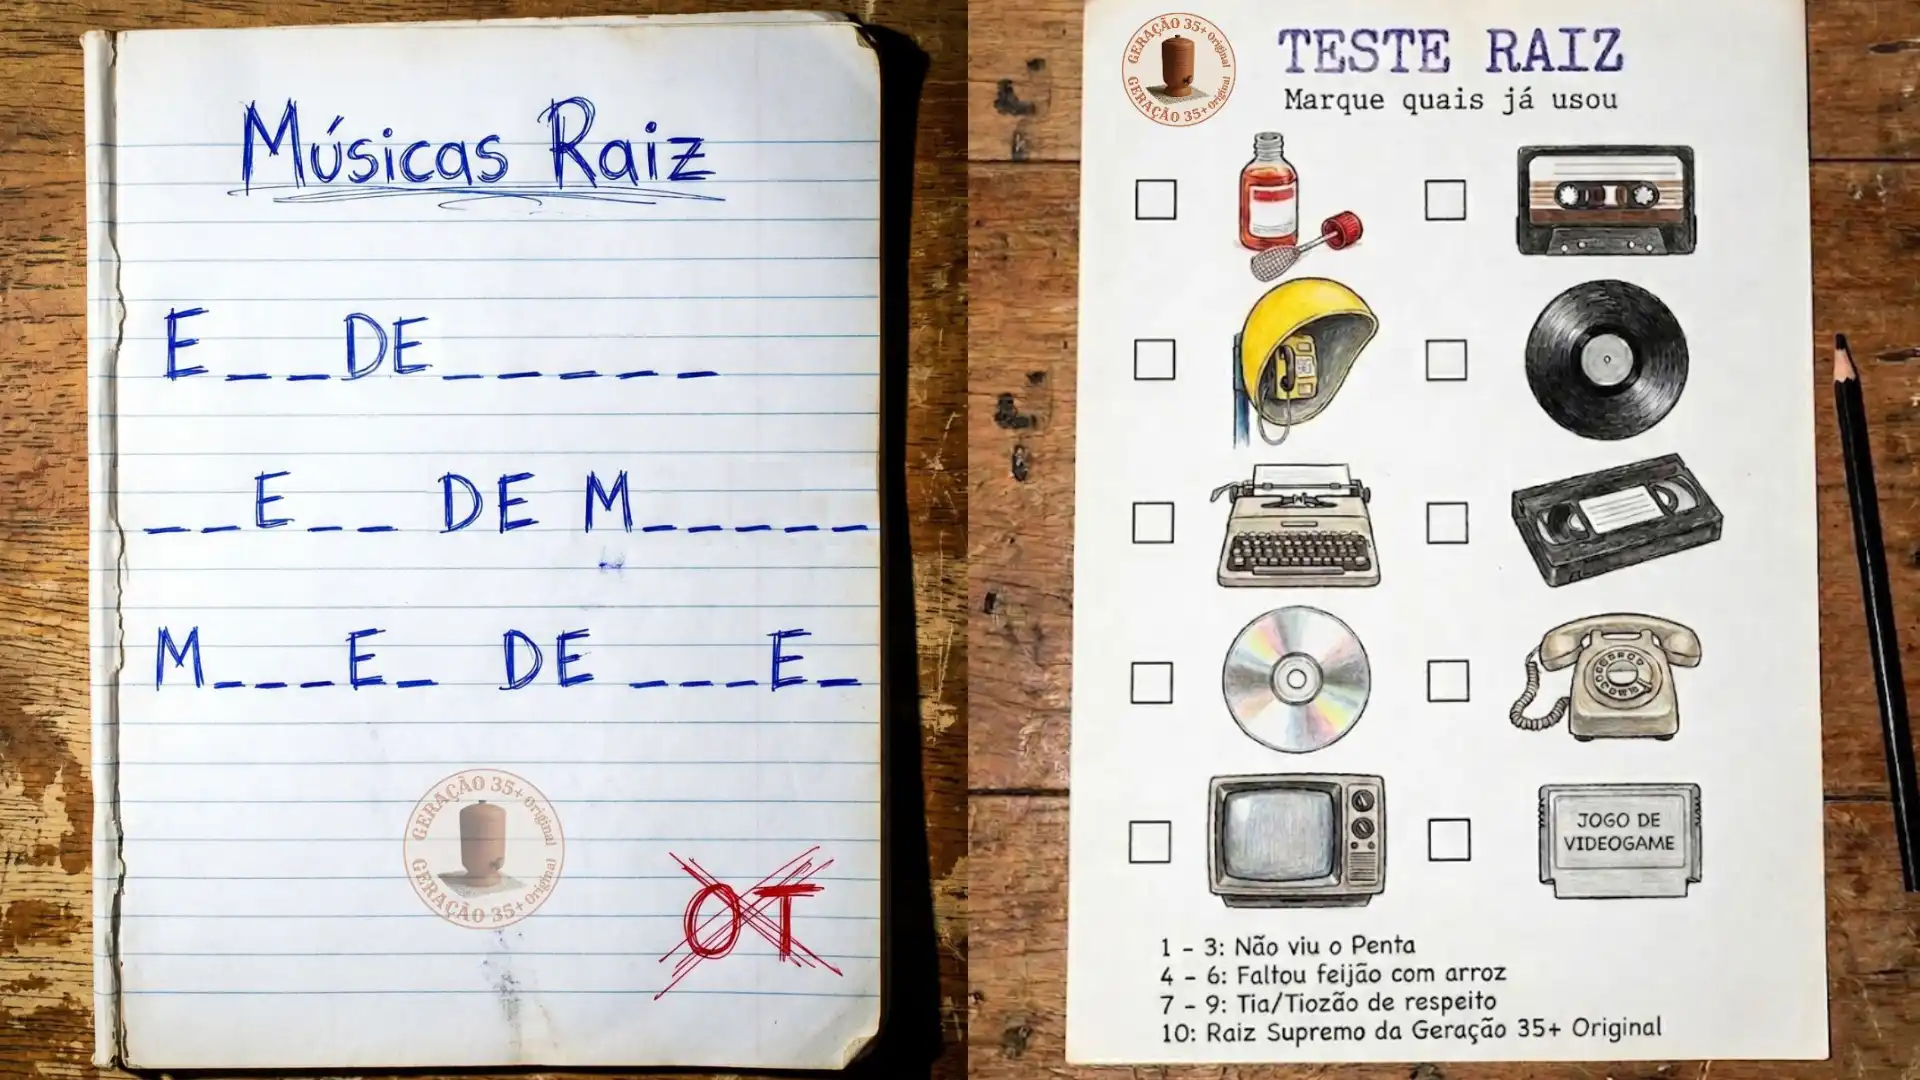 Músicas Raiz
E _ _ DE _ _ _ _ _ _
_ _ E _ _ DE M _ _ _ _ _
M _ _ _ E _ DE _ _ _ E _
GERAÇÃO 35+ original
GERAÇÃO 35+ original
OT
GERAÇÃO 35+ original
GERAÇÃO 35+ original
TESTE RAIZ
Marque quais já usou
JOGO DE
VIDEOGAME
1 - 3: Não viu o Penta
4 - 6: Faltou feijão com arroz
7 - 9: Tia/Tiozão de respeito
10: Raiz Supremo da Geração 35+ Original